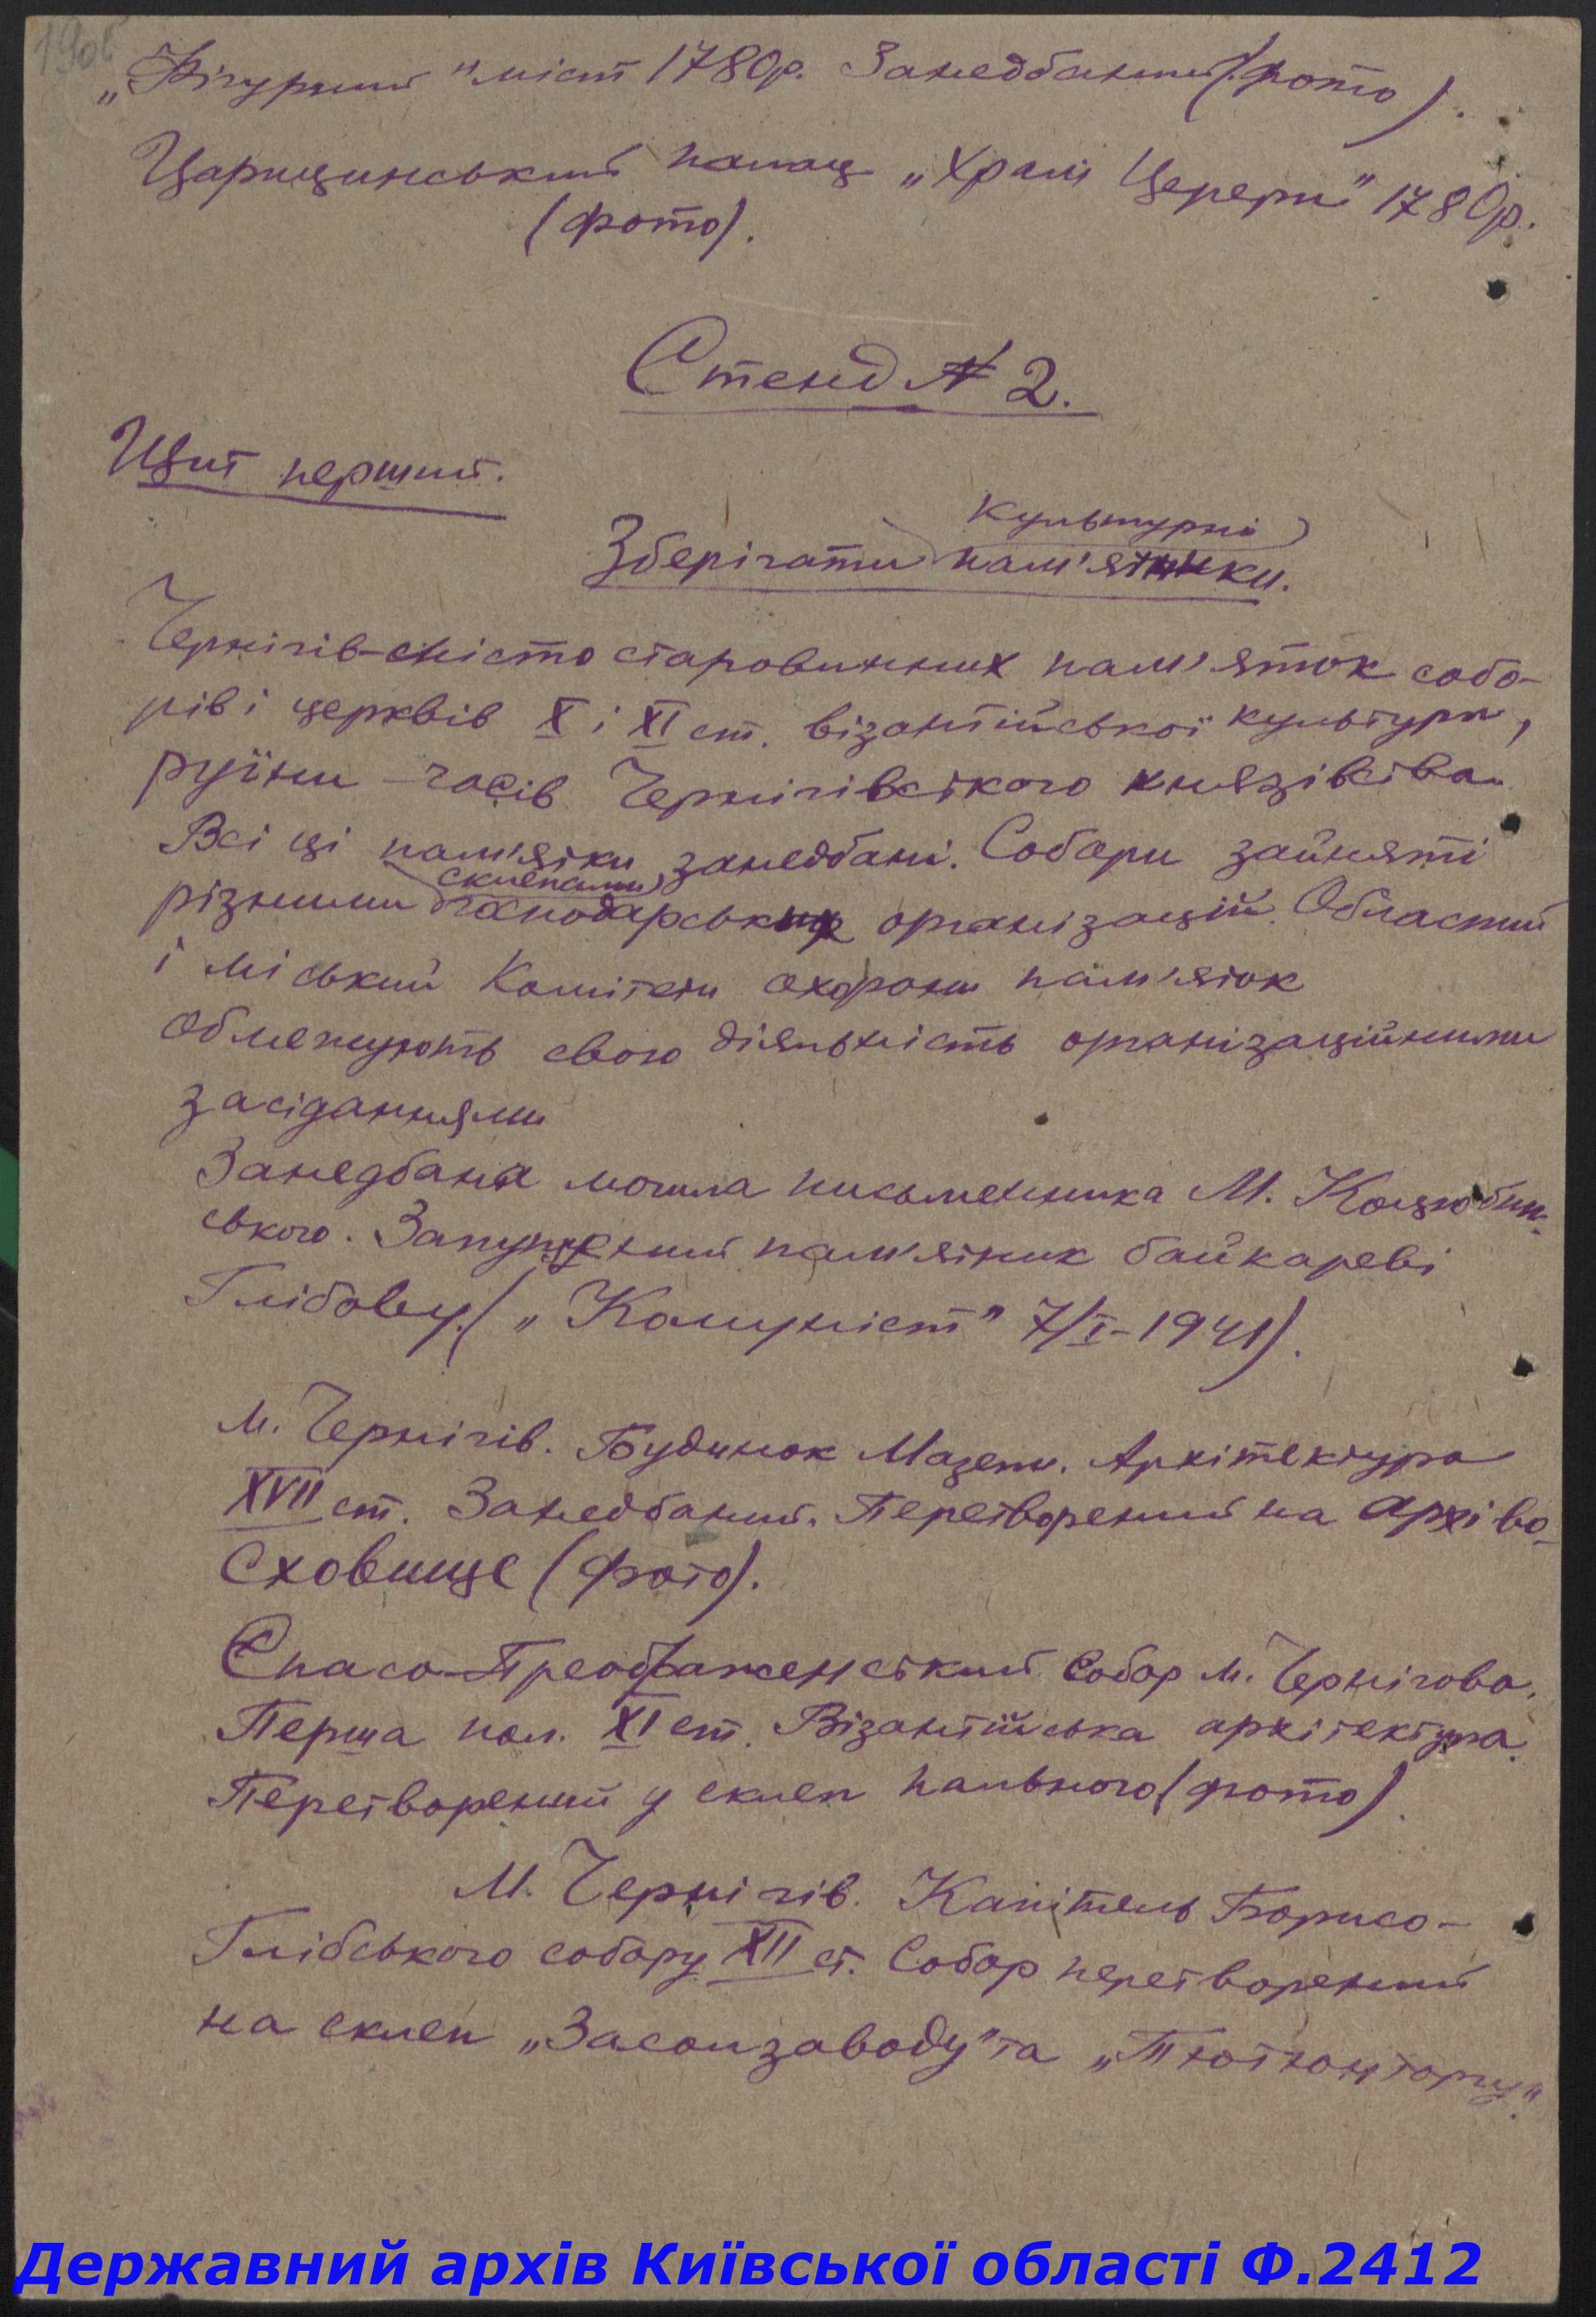 190б
„Фігурний" міст 1780р. Занедбаний (фото).
Царицинський палац „Храм Церери" 1780р.
(фото).
Стенд № 2.
Щит перший.
культурні
Зберігати пам'ятники.
Чернігів-місто старовинних пам'яток собо-
рів і церквів X і XI ст. візантійської культури,
руїни часів Чернігівського князівства.
Всі ці пам'ятки занедбані. Собори зайняті
склепами
різними господарських організацій. Обласний
і міський Комітети охорони пам'яток
обмежують свою діяльність організаційними
засіданнями
Занедбана могила письменника М. Коцюбин-
ського. Запущений пам'ятник байкареві
Глібову. („Комуніст" 7/I-1941).
м. Чернігів. Будинок Мазепи. Архітектура
XVII ст. Занедбаний. Перетворений на архіво-
сховище (фото).
Спасо-Преображенський Собор м. Чернігова.
Перша пол. XI ст. Візантійська архітектура.
Перетворений у склеп пального (фото).
М. Чернігів. Капітель Борисо-
Глібського собору XII ст. Собор перетворений
на склеп „Засолзаводу" та
Державний архів Київської області Ф.2412